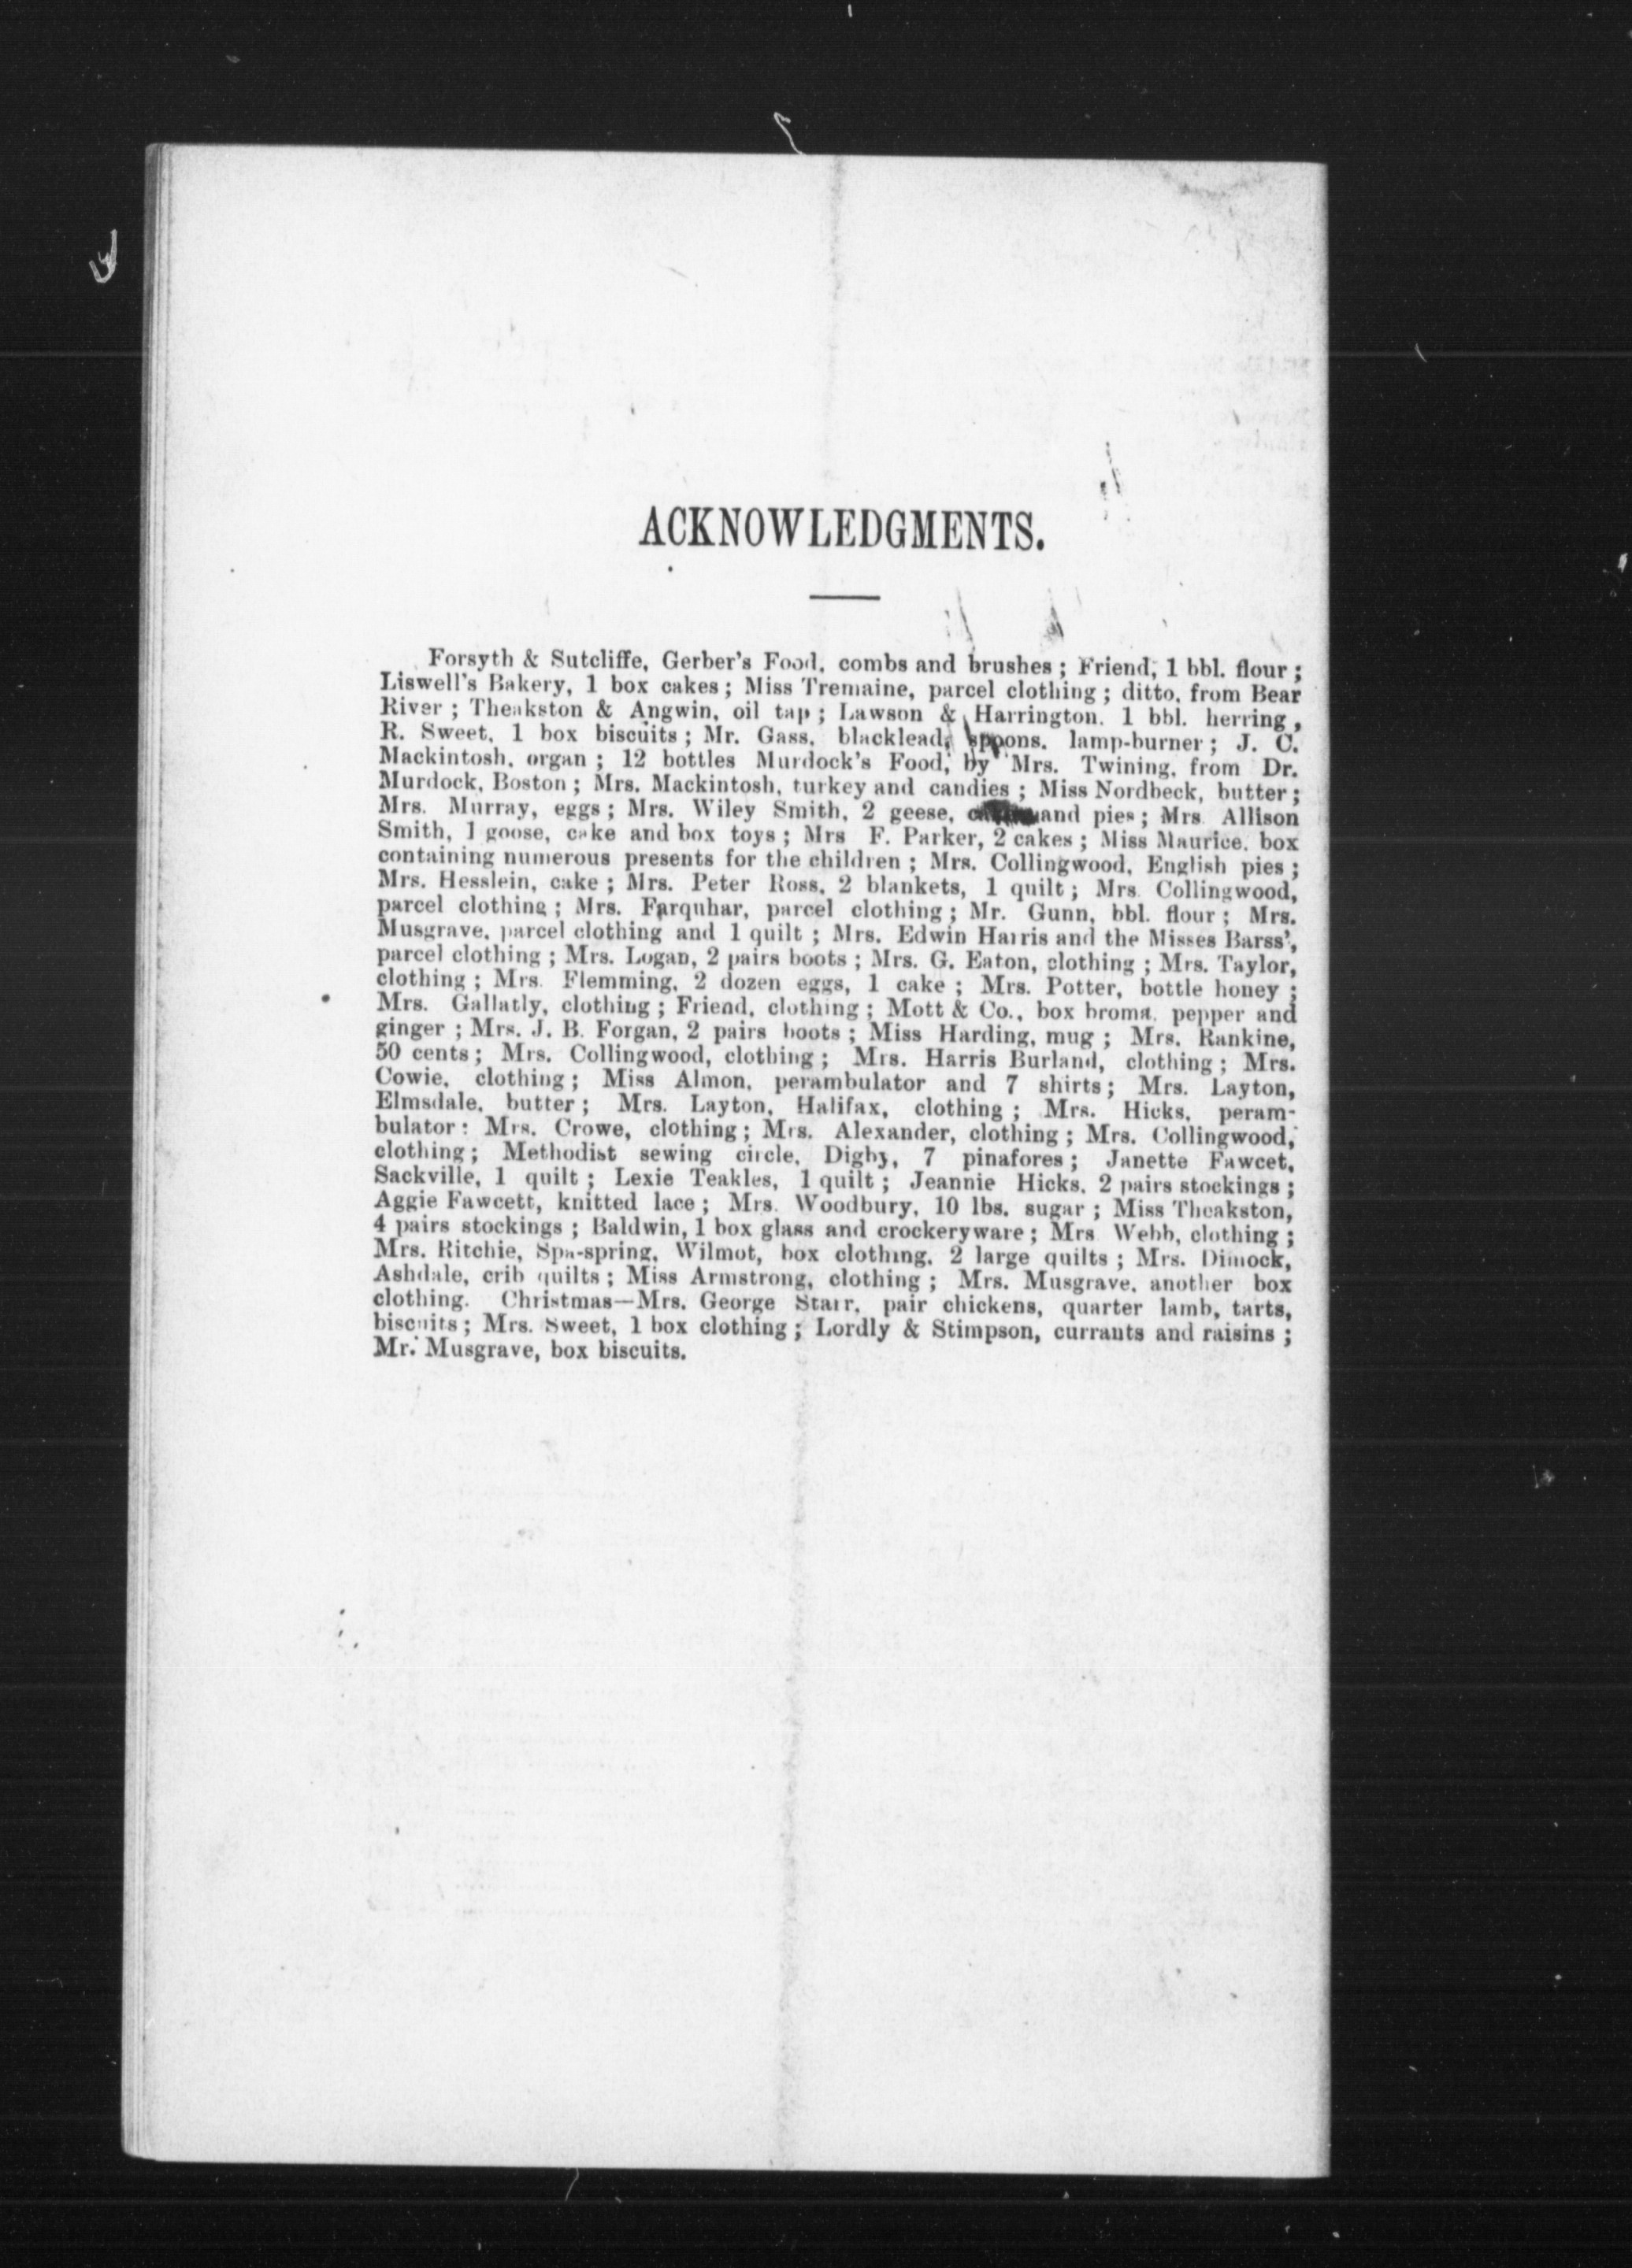 ACKNOWLEDGMENTS.
Forsyth & Sutcliffe, Gerber's Food, combs and brushes ; Friend, 1 bbl. flour ;
Liswell's Bakery, 1 box cakes ; Miss Tremaine, parcel clothing ; ditto, from Bear
River ; Theakston & Angwin, oil tap ; Lawson & Harrington, 1 bbl. herring,
R. Sweet, 1 box biscuits ; Mr. Gass, blacklead, spoons, lamp-burner ; J. C.
Mackintosh, organ ; 12 bottles Murdock's Food, by Mrs. Twining, from Dr.
Murdock, Boston ; Mrs. Mackintosh, turkey and candies ; Miss Nordbeck, butter ;
Mrs. Murray, eggs ; Mrs. Wiley Smith, 2 geese, and pies ; Mrs Allison
Smith, 1 goose, cake and box toys ; Mrs F. Parker, 2 cakes ; Miss Maurice, box
containing numerous presents for the children ; Mrs. Collingwood, English pies ;
Mrs. Hesslein, cake ; Mrs. Peter Ross, 2 blankets, 1 quilt ; Mrs. Collingwood,
parcel clothing ; Mrs. Farquhar, parcel clothing ; Mr. Gunn, bbl. flour ; Mrs.
Musgrave, parcel clothing and 1 quilt ; Mrs. Edwin Harris and the Misses Barss',
parcel clothing ; Mrs. Logan, 2 pairs boots ; Mrs. G. Eaton, clothing ; Mrs. Taylor,
clothing ; Mrs. Flemming, 2 dozen eggs, 1 cake ; Mrs. Potter, bottle honey ;
Mrs. Gallatly, clothing ; Friend, clothing ; Mott & Co., box broma, pepper and
ginger ; Mrs. J. B. Forgan, 2 pairs boots ; Miss Harding, mug ; Mrs. Rankine,
50 cents ; Mrs. Collingwood, clothing ; Mrs. Harris Burland, clothing ; Mrs.
Cowie, clothing ; Miss Almon, perambulator and 7 shirts ; Mrs. Layton,
Elmsdale, butter ; Mrs. Layton, Halifax, clothing ; Mrs. Hicks, peram-
bulator : Mrs. Crowe, clothing ; Mrs. Alexander, clothing ; Mrs. Collingwood,
clothing ; Methodist sewing circle, Digby, 7 pinafores ; Janette Fawcet,
Sackville, 1 quilt ; Lexie Teakles, 1 quilt ; Jeannie Hicks, 2 pairs stockings ;
Aggie Fawcett, knitted lace ; Mrs. Woodbury, 10 lbs. sugar ; Miss Theakston,
4 pairs stockings ; Baldwin, 1 box glass and crockeryware ; Mrs Webb, clothing ;
Mrs. Ritchie, Spa-spring, Wilmot, box clothing, 2 large quilts ; Mrs. Dimock,
Ashdale, crib quilts ; Miss Armstrong, clothing ; Mrs. Musgrave, another box
clothing. Christmas—Mrs. George Starr, pair chickens, quarter lamb, tarts,
biscuits ; Mrs. Sweet, 1 box clothing ; Lordly & Stimpson, currants and raisins ;
Mr. Musgrave, box biscuits.